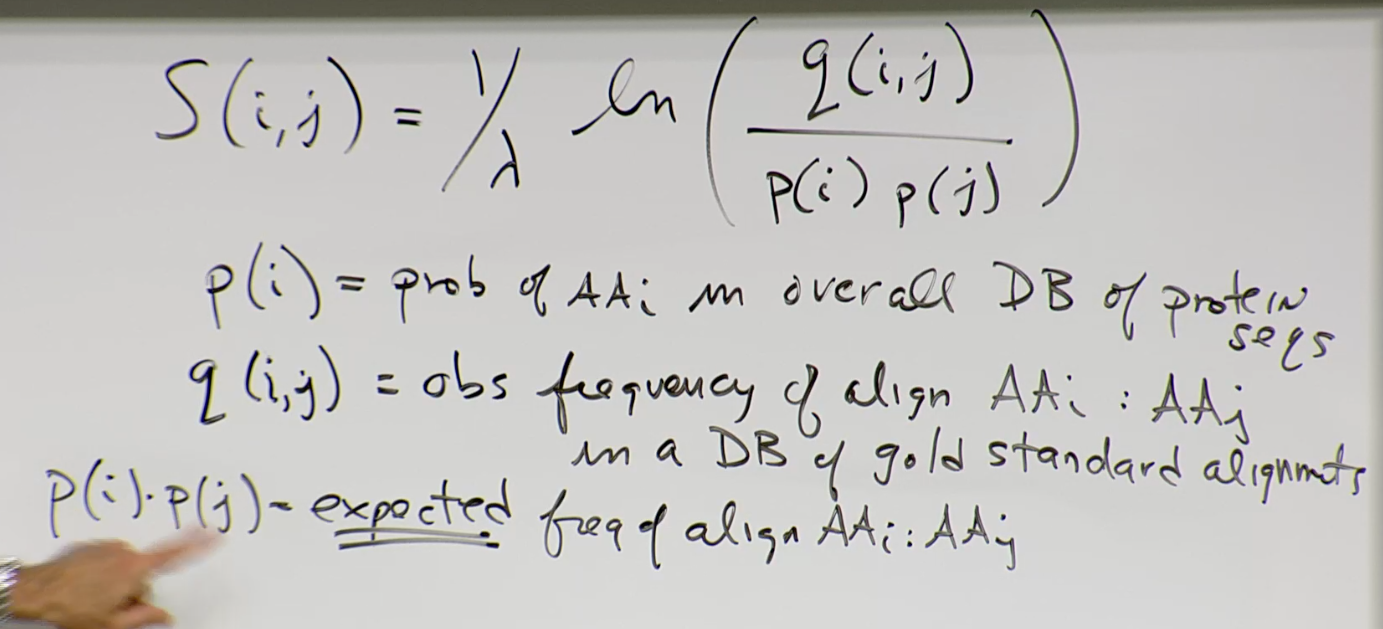 S(i,j) = 1/λ ln ( q(i,j) / p(i) p(j) )
p(i) = prob of AAi in overall DB of protein
seqs
q(i,j) = obs frequency of align AAi : AAj
in a DB of gold standard alignmts
p(i)·p(j) = expected freq of align AAi : AAj